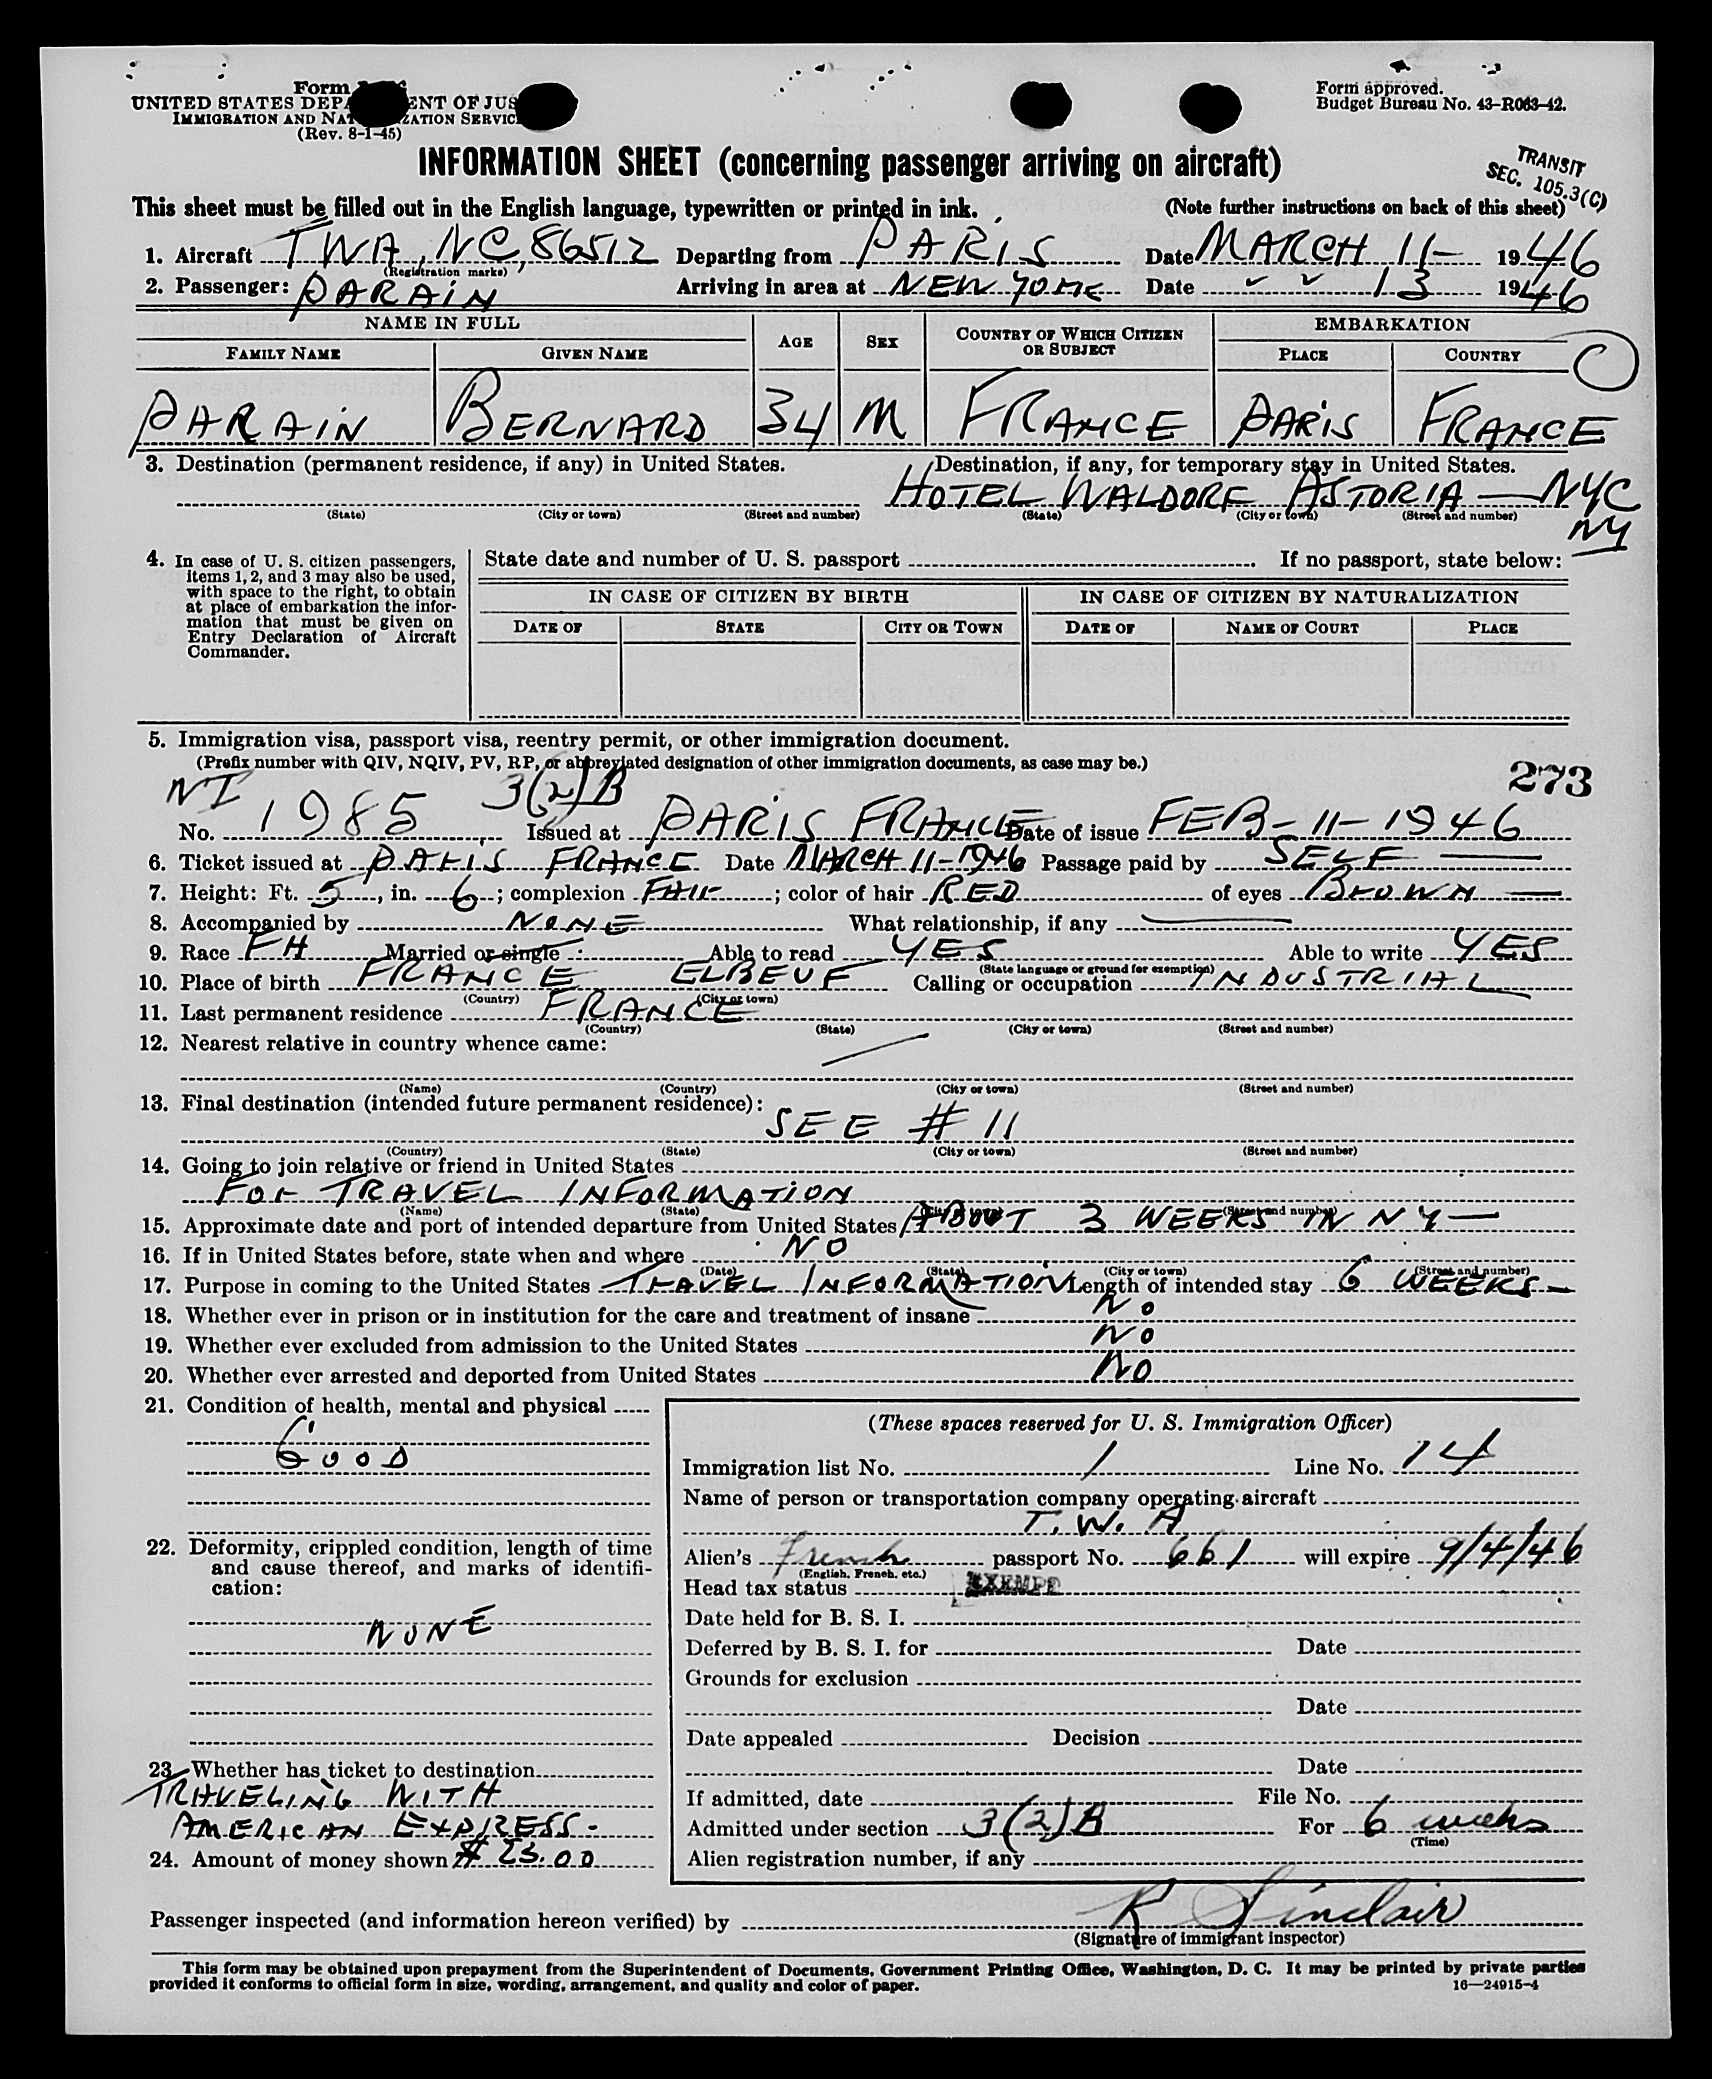 Form
UNITED STATES DEPA ENT OF JUS
IMMIGRATION AND NAT ZATION SERVIC
(Rev. 8-1-45)
Form approved.
Budget Bureau No. 43-R063-42.
INFORMATION SHEET (concerning passenger arriving on aircraft)
TRANSIT
SEC. 105.3(C)
This sheet must be filled out in the English language, typewritten or printed in ink. (Note further instructions on back of this sheet)
1. Aircraft TWA, NC, 86512 Departing from PARIS Date MARCH 11- 1946
(Registration marks)
2. Passenger: PARAIN Arriving in area at NEW YORK Date " " 13 1946
NAME IN FULL AGE SEX COUNTRY OF WHICH CITIZEN OR SUBJECT EMBARKATION
FAMILY NAME GIVEN NAME PLACE COUNTRY
PARAIN BERNARD 34 M FRANCE PARIS FRANCE
3. Destination (permanent residence, if any) in United States. Destination, if any, for temporary stay in United States.
HOTEL WALDORF ASTORIA — NYC
NY
(State) (City or town) (Street and number) (State) (City or town) (Street and number)
4. In case of U. S. citizen passengers, items 1, 2, and 3 may also be used, with space to the right, to obtain at place of embarkation the information that must be given on Entry Declaration of Aircraft Commander.
State date and number of U. S. passport If no passport, state below:
IN CASE OF CITIZEN BY BIRTH IN CASE OF CITIZEN BY NATURALIZATION
DATE OF STATE CITY OR TOWN DATE OF NAME OF COURT PLACE
5. Immigration visa, passport visa, reentry permit, or other immigration document.
(Prefix number with QIV, NQIV, PV, RP, or abbreviated designation of other immigration documents, as case may be.)
273
NI 3(2)B
No. 1985 Issued at PARIS FRANCE Date of issue FEB-11-1946
6. Ticket issued at PARIS FRANCE Date MARCH 11-1946 Passage paid by SELF
7. Height: Ft. 5, in. 6; complexion FAIR; color of hair RED of eyes BROWN
8. Accompanied by NONE What relationship, if any
9. Race FH Married or single Able to read YES Able to write YES
(State language or ground for exemption)
10. Place of birth FRANCE ELBEUF Calling or occupation INDUSTRIAL
(Country) (City or town)
11. Last permanent residence FRANCE
(Country) (State) (City or town) (Street and number)
12. Nearest relative in country whence came:
(Name) (Country) (City or town) (Street and number)
13. Final destination (intended future permanent residence):
SEE # 11
(Country) (State) (City or town) (Street and number)
14. Going to join relative or friend in United States
FOR TRAVEL INFORMATION
(Name) (State) (City or town) (Street and number)
15. Approximate date and port of intended departure from United States ABOUT 3 WEEKS IN NY —
16. If in United States before, state when and where NO
(Date) (State) (City or town) (Street and number)
17. Purpose in coming to the United States TRAVEL INFORMATION Length of intended stay 6 WEEKS —
18. Whether ever in prison or in institution for the care and treatment of insane NO
19. Whether ever excluded from admission to the United States NO
20. Whether ever arrested and deported from United States NO
21. Condition of health, mental and physical
GOOD
22. Deformity, crippled condition, length of time and cause thereof, and marks of identification:
NONE
23. Whether has ticket to destination
TRAVELING WITH
AMERICAN EXPRESS -
24. Amount of money shown $ 25.00
(These spaces reserved for U. S. Immigration Officer)
Immigration list No. 1 Line No. 14
Name of person or transportation company operating aircraft
T. W. A
Alien's French passport No. 661 will expire 9/4/46
(English, French, etc.)
Head tax status EXEMPT
Date held for B. S. I.
Deferred by B. S. I. for Date
Grounds for exclusion
Date
Date appealed Decision
Date
If admitted, date File No.
Admitted under section 3(2)B For 6 weeks
(Time)
Alien registration number, if any
Passenger inspected (and information hereon verified) by R Sinclair
(Signature of immigrant inspector)
This form may be obtained upon prepayment from the Superintendent of Documents, Government Printing Office, Washington, D. C. It may be printed by private parties
provided it conforms to official form in size, wording, arrangement, and quality and color of paper. 16—24915-4